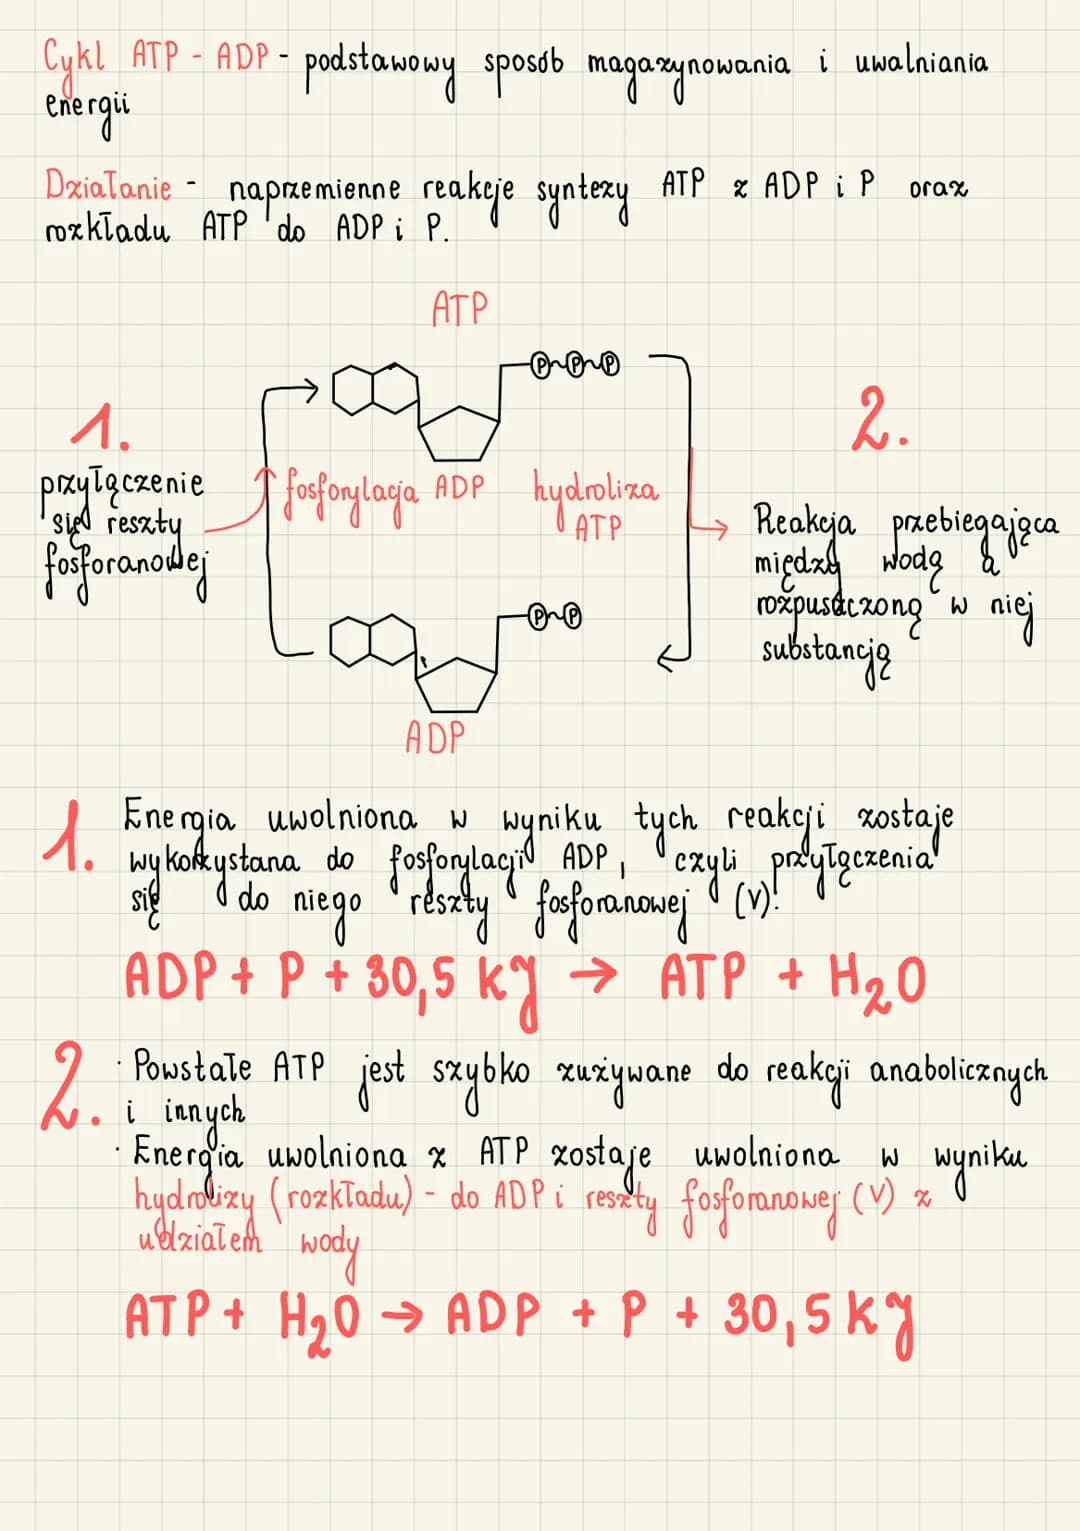 Cykl ATP - ADP - podstawowy sposób magazynowania i uwalniania
energii
Działanie - naprzemienne reakcje syntezy ATP z ADP i P oraz
rozkładu ATP do ADP i P.
ATP
P P P
1.
2.
przyłączenie
się reszty
fosforanowej
fosforylacja ADP
hydroliza
ATP
Reakcja przebiegająca
między wodą a
rozpuszczoną w niej
substancją
P P
ADP
1. Energia uwolniona w wyniku tych reakcji zostaje
wykorzystana do fosforylacji ADP, czyli przyłączenia
się do niego reszty fosforanowej (V).
ADP + P + 30,5 kJ → ATP + H₂O
2. · Powstałe ATP jest szybko zużywane do reakcji anabolicznych
i innych
· Energia uwolniona z ATP zostaje uwolniona w wyniku
hydrolizy (rozkładu) - do ADP i reszty fosforanowej (V) z
udziałem wody
ATP + H₂O → ADP + P + 30,5 kJ